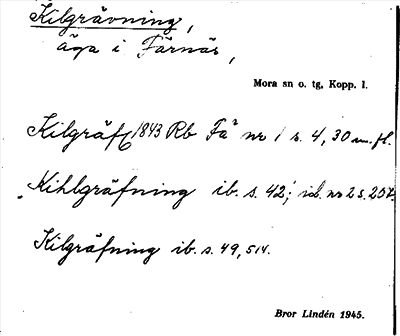 Kilgrävning,
äga i Färnäs,
Mora sn o. tg, Kopp. l.
Kilgräf 1843 Rb Fä² nr 1 s. 4, 30 m. fl.
Kihlgräfning ib. s. 42; ib. nr 2 s. 207.
Kilgräfning ib. s. 49, 514.
Bror Lindén 1945.